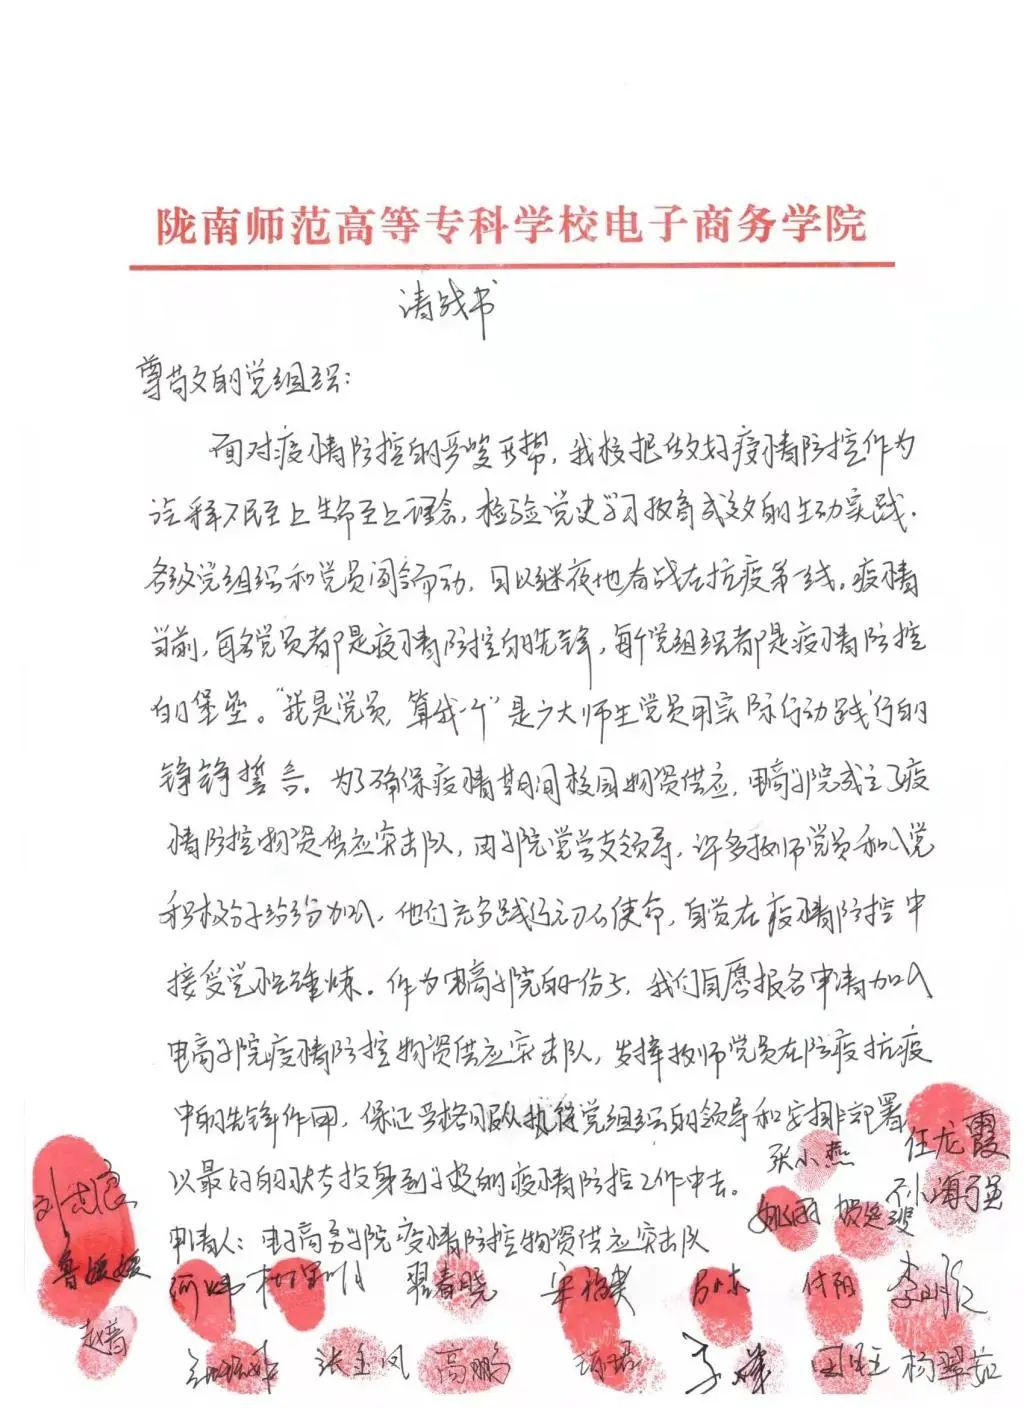 陇南师范高等专科学校电子商务学院
请战书
尊敬的党组织：
面对疫情防控的严峻形势，我校把做好疫情防控作为
诠释人民至上生命至上理念，检验党史学习教育成效的生动实践．
各级党组织和党员闻令而动，日以继夜地奋战在抗疫第一线。疫情
当前，每名党员都是疫情防控的先锋，每个党组织都是疫情防控
的堡垒。“我是党员，算我一个”是广大师生党员用实际行动践行的
铮铮誓言。为了确保疫情期间校园物资供应，电商学院成立了疫
情防控物资供应突击队，由学院党总支领导，许多教师党员和入党
积极分子纷纷加入，他们充分践行初心使命，自觉在疫情防控中
接受党性锤炼。作为电商学院的一份子，我们自愿报名申请加入
电商学院疫情防控物资供应突击队，发挥教师党员在防疫抗疫
中的先锋作用，保证严格服从执行党组织的领导和安排部署
以最好的状态投身到学校的疫情防控工作中去。
申请人：电子商务学院疫情防控物资供应突击队
张小燕 任龙霞
刘志良 姚丽 孙海强
鲁媛媛 翟春晓 付阳
赵普 张金凤 高鹏 杨翠茹